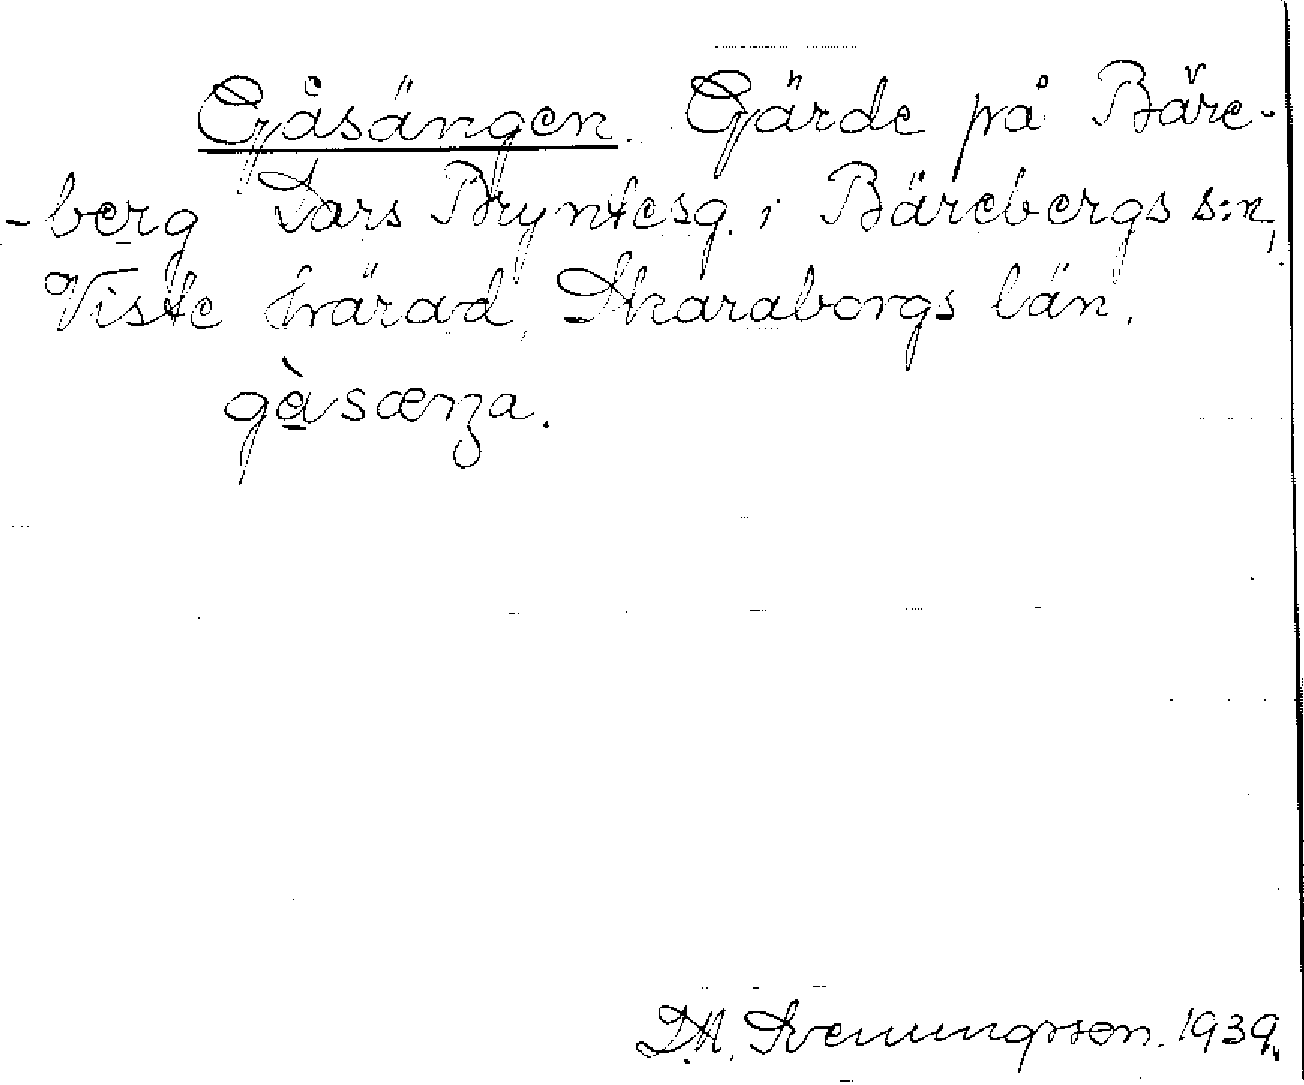 Gåsängen. Gärde på Bäre-
-berg Lars Bryntesg. i Bärebergs s:n,
Viste härad, Skaraborgs län.
gàsæŋa.
D.A. Svenungsson. 1939.